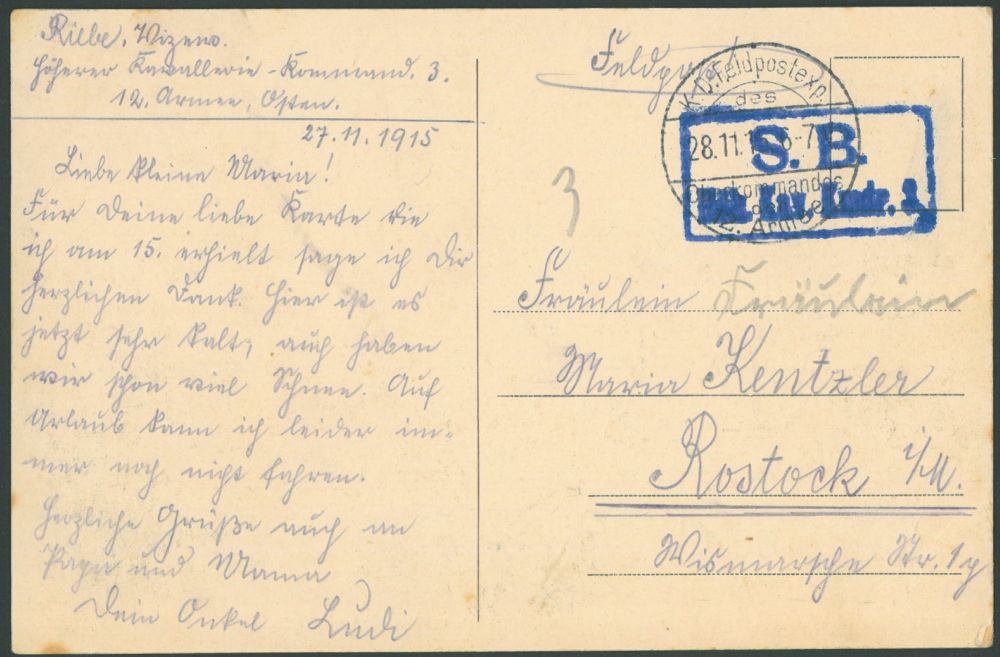 Riebe, Wizew.
Höherer Kavallerie-Kommand. 3.
12. Armee, Osten.
27.11.1915
Liebe kleine Maria!
Für Deine liebe Karte die
ich am 15. erhielt sage ich Dir
herzlichen Dank. Hier ist es
jetzt sehr kalt, auch haben
wir schon viel Schnee. Auf
Urlaub kann ich leider im-
mer noch nicht fahren.
Herzliche Grüße auch an
Papa und Mama
Dein Onkel Ludi
Feldpost
K.D. Feldpostexp.
des
28.11.15 6-7
Oberkommandos
der
12. Armee
S. B.
Kav. Kmdr. 3
3
Fräulein Fräulein
Maria Kentzler
Rostock i/M.
Wismarsche Str.